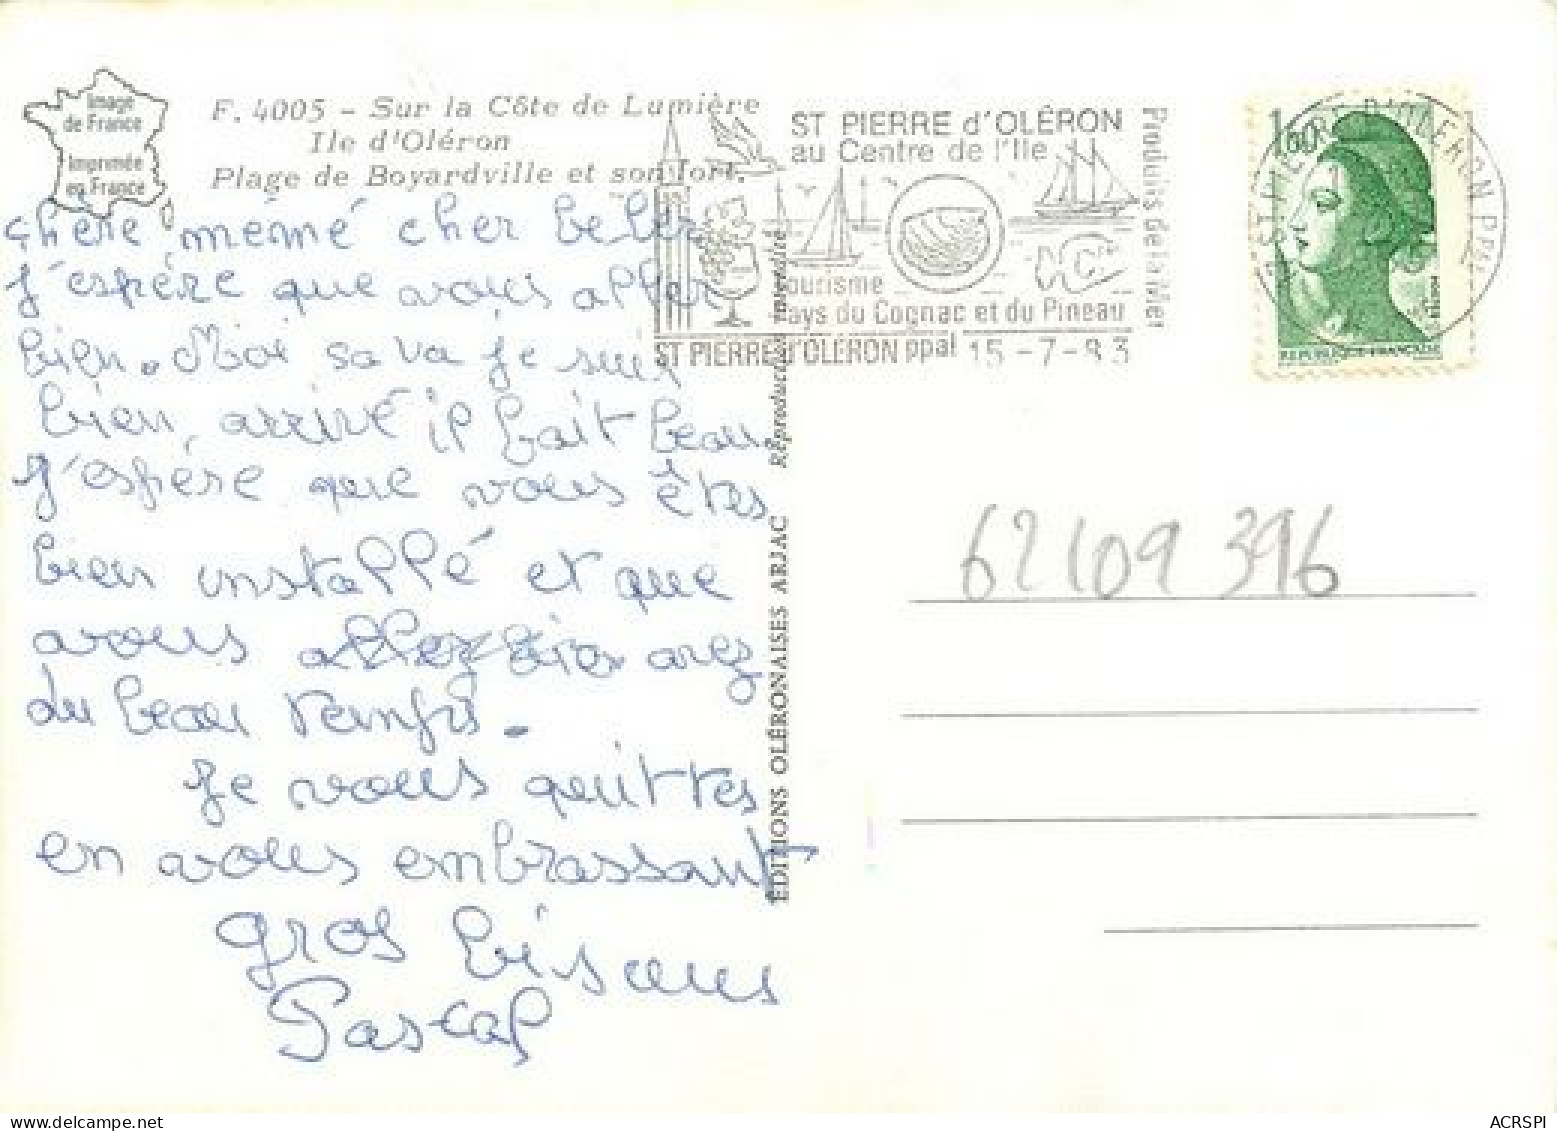 Image
de France
Imprimée
en France
F. 4005 - Sur la Côte de Lumière
Ile d'Oléron
Plage de Boyardville et son fort.
ST PIERRE d'OLÉRON
au Centre de l'Ile
Produits de la Mer
Tourisme
Pays du Cognac et du Pineau
ST PIERRE D'OLERON PPAL 15-7-83
1,60
REPUBLIQUE FRANÇAISE
ST PIERRE D'OLERON PPAL
chère mémé cher beber
j'espère que vous aller
bien. Moi sa va je suis
bien, arrivé il fait beau
j'espère que vous êtes
bien installé et que
vous allez avez
du beau temps.
Je vous quittes
en vous embrassant
gros bisous
Pascal
EDITIONS OLÉRONAISES ARJAC Reproduction interdite
62109 396
ACRSPI